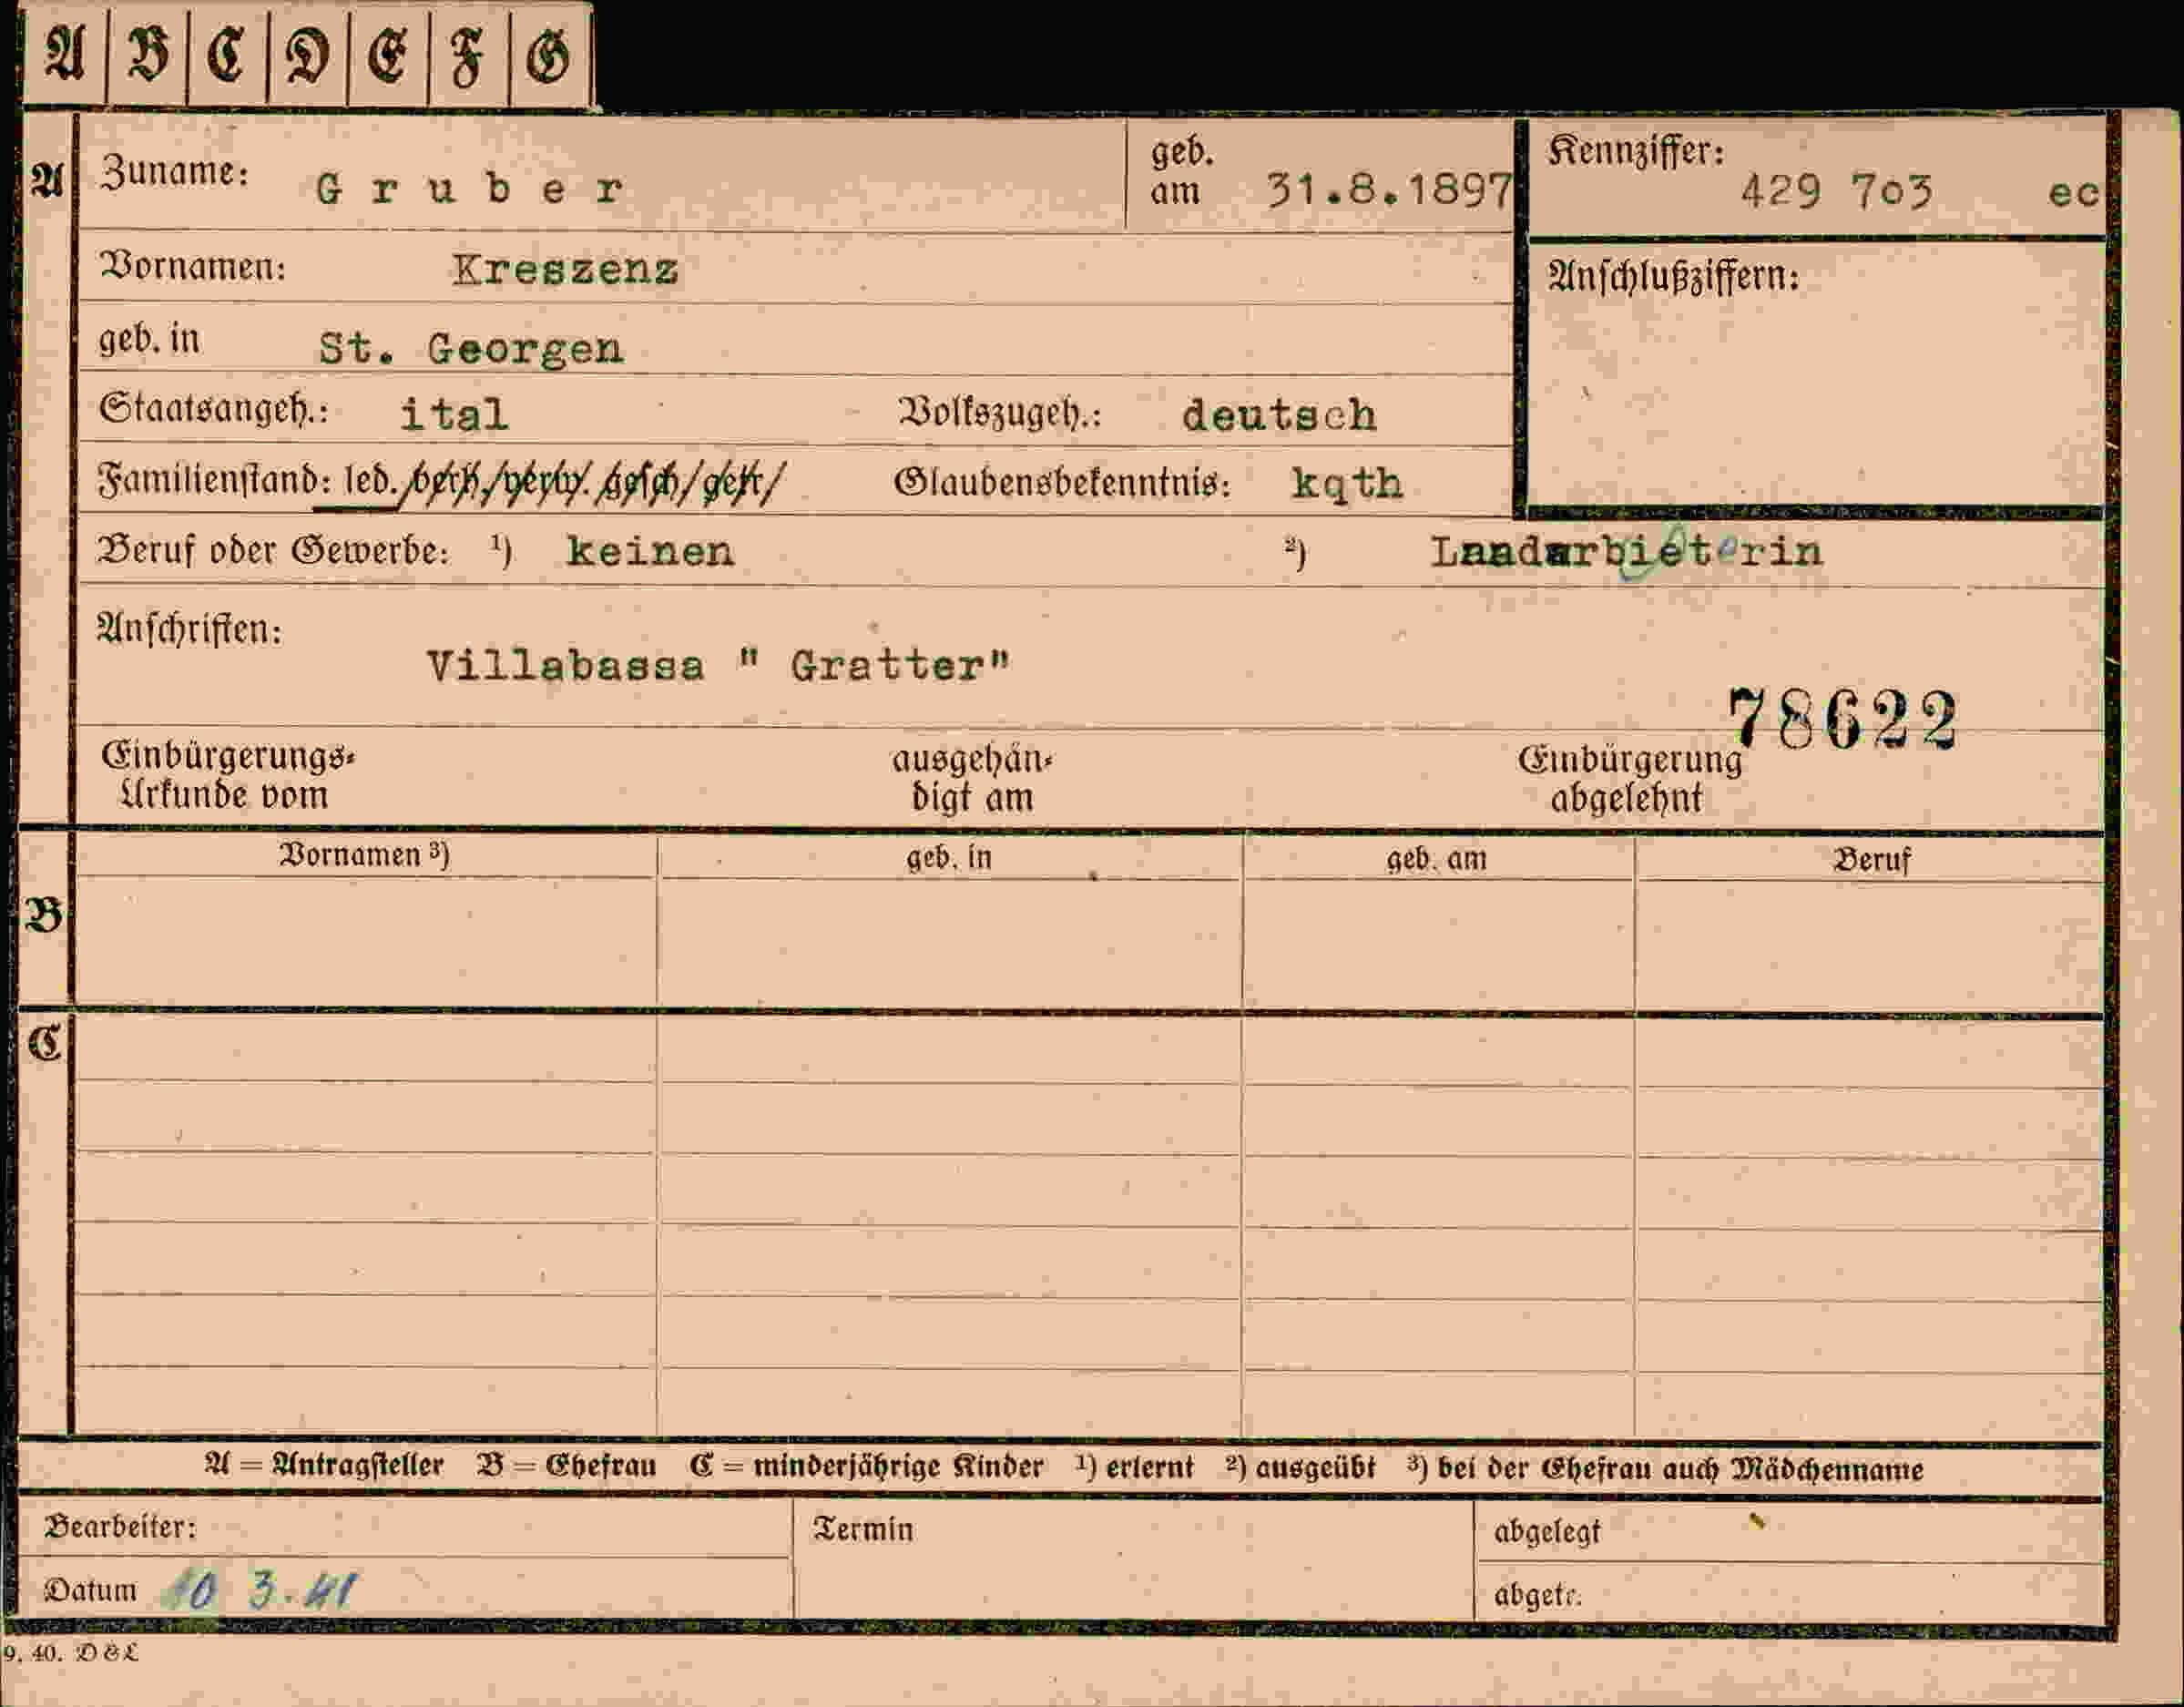 A B C D E F G
A Zuname: Gruber geb. am 31.8.1897 Kennziffer: 429 703 ec
Vornamen: Kreszenz Anschlußziffern:
geb. in St. Georgen
Staatsangeh.: ital Volkszugeh.: deutsch
Familienstand: led./verh./verw. gesch/getr/ Glaubensbekenntnis: kqth
Beruf oder Gewerbe: ¹) keinen ²) Laadarbieterin
Anschriften:
Villabassa " Gratter"
78622
Einbürgerungs-
Urkunde vom
ausgehän-
digt am
Einbürgerung
abgelehnt
B Vornamen ³) geb. in geb. am Beruf
C
A = Antragsteller B = Ehefrau C = minderjährige Kinder ¹) erlernt ²) ausgeübt ³) bei der Ehefrau auch Mädchenname
Bearbeiter: Termin abgelegt
Datum 10 3.41 abgetr.
9. 40. D&L